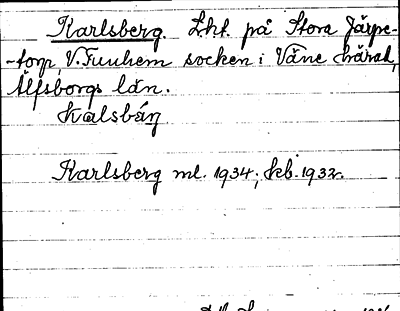 Karlsberg. Lht. på Stora Järpe-
-torp, V. Tunhem socken i Väne härad,
Älfsborgs län.
kalsbärj
Karlsberg ml. 1934; jkb. 1932.